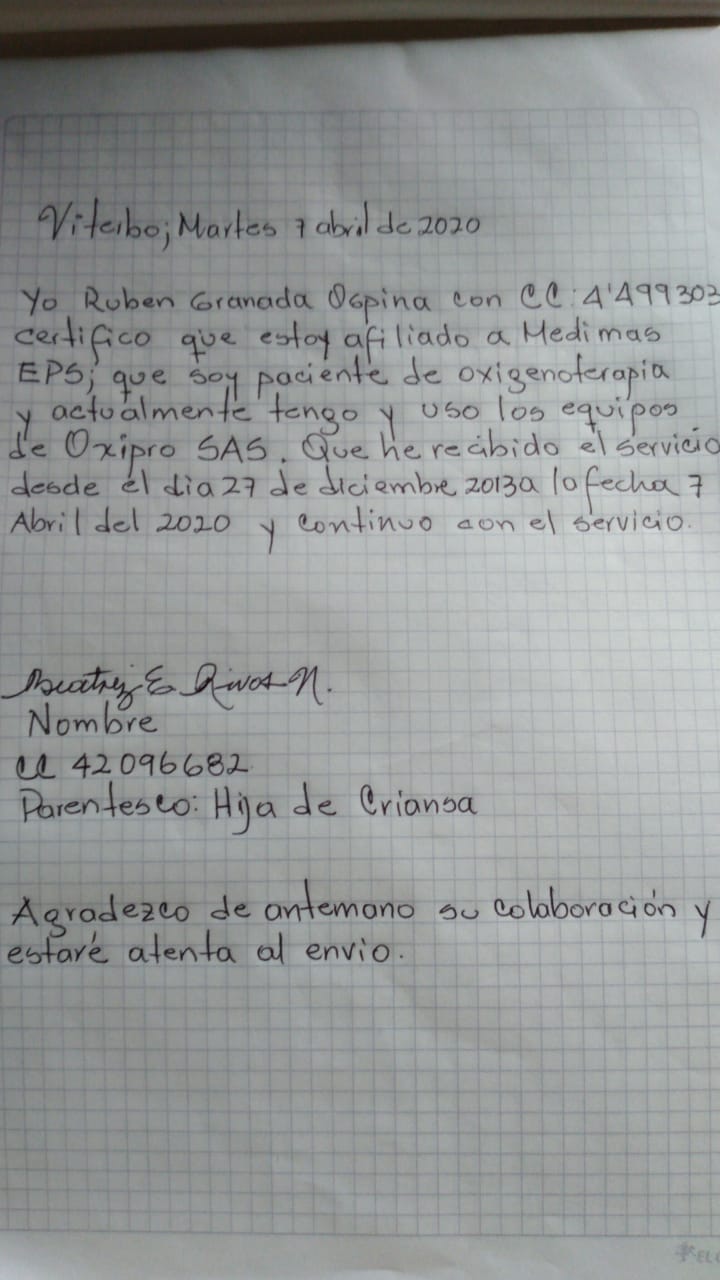 Viterbo; Martes 7 abril de 2020
Yo Ruben Granada Ospina con CC: 4'499303
certifico que estoy afiliado a Medimas
EPS; que soy paciente de oxigenoterapia
y actualmente tengo y uso los equipos
de Oxipro SAS. Que he recibido el servicio
desde el dia 27 de diciembre 2013 a la fecha 7
Abril del 2020 y continuo con el servicio.
Beatriz E Rivas N.
Nombre
CC 42096682
Parentesco: Hija de Criansa
Agradezco de antemano su colaboración y
estaré atenta al envio.